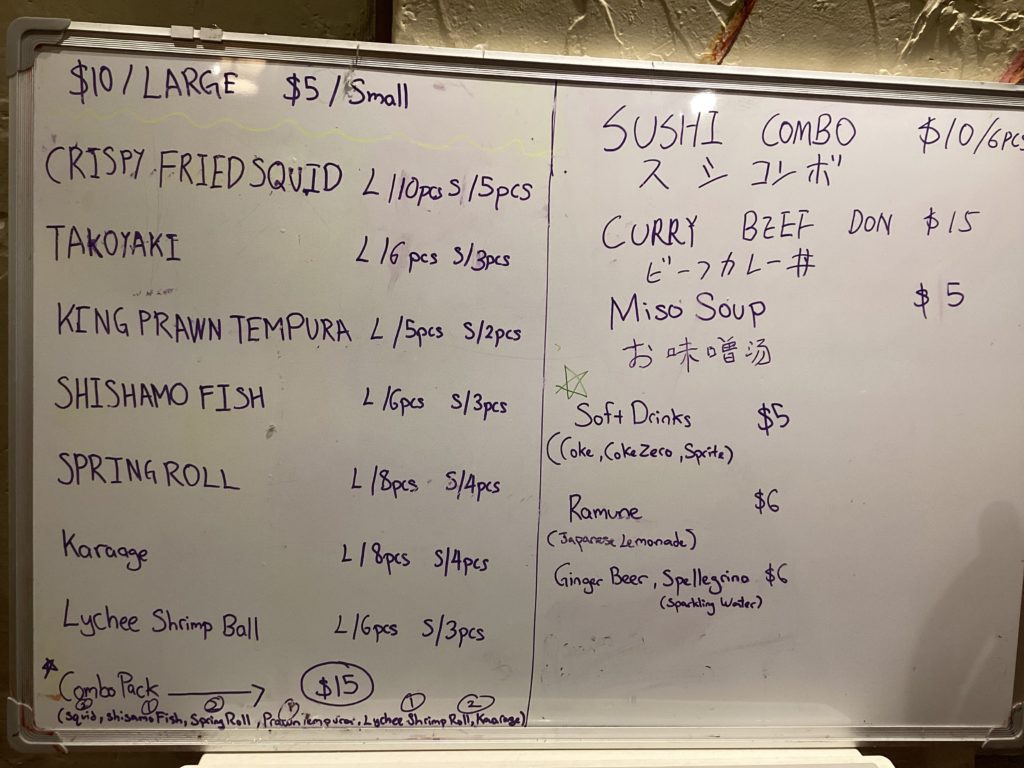 $10 / LARGE $5 / Small
CRISPY FRIED SQUID L /10pcs S /5pcs
TAKOYAKI L /6 pcs S/3pcs
KING PRAWN TEMPURA L /5pcs S/2pcs
SHISHAMO FISH L /6pcs S/3pcs
SPRING ROLL L /8pcs S/4pcs
Karaage L /8pcs S/4pcs
Lychee Shrimp Ball L/6pcs S/3pcs
Combo Pack $15
① ② ① ②
(Squid, shisamo Fish, Spring Roll, Prawn Tempura, Lychee Shrimp Roll, Kaarage)
SUSHI COMBO $10/6pcs
スシ コンボ
CURRY BEEF DON $15
ビーフカレー丼
Miso Soup $5
お味噌汤
Soft Drinks $5
(Coke, Coke Zero, Sprite)
Ramune $6
(Japanese Lemonade)
Ginger Beer, Spellegrino $6
(Sparkling Water)